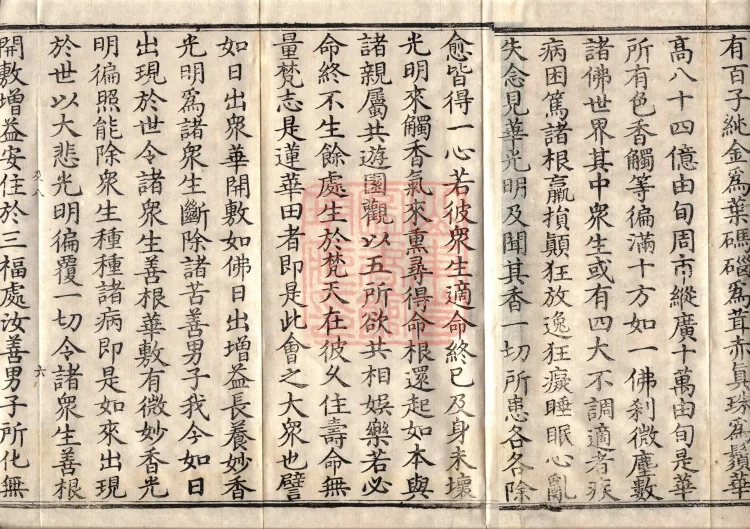 有百子純金爲葉碼碯爲茸赤眞珠爲鬚華
高八十四億由旬周帀縱廣十萬由旬是華
所有色香觸等徧滿十方如一佛刹微塵數
諸佛世界其中衆生或有四大不調適者疾
病困篤諸根羸損顚狂放逸狂癡睡眠心亂
失念見華光明及聞其香一切所患各各除
愈皆得一心若彼衆生適命終已及身未壞
光明來觸香氣來熏尋得命根還起如本與
諸親屬共遊園觀以五所欲共相娛樂若必
命終不生餘處生於梵天在彼久住壽命無
量梵志是蓮華田者即是此會之大衆也譬
如日出衆華開敷如佛日出增益長養妙香
光明爲諸衆生斷除諸苦善男子我今如日
出現於世令諸衆生善根華敷有微妙香光
明徧照能除衆生種種諸病即是如來出現
於世以大悲光明徧覆一切令諸衆生善根
開敷增益安住於三福處汝善男子所化無